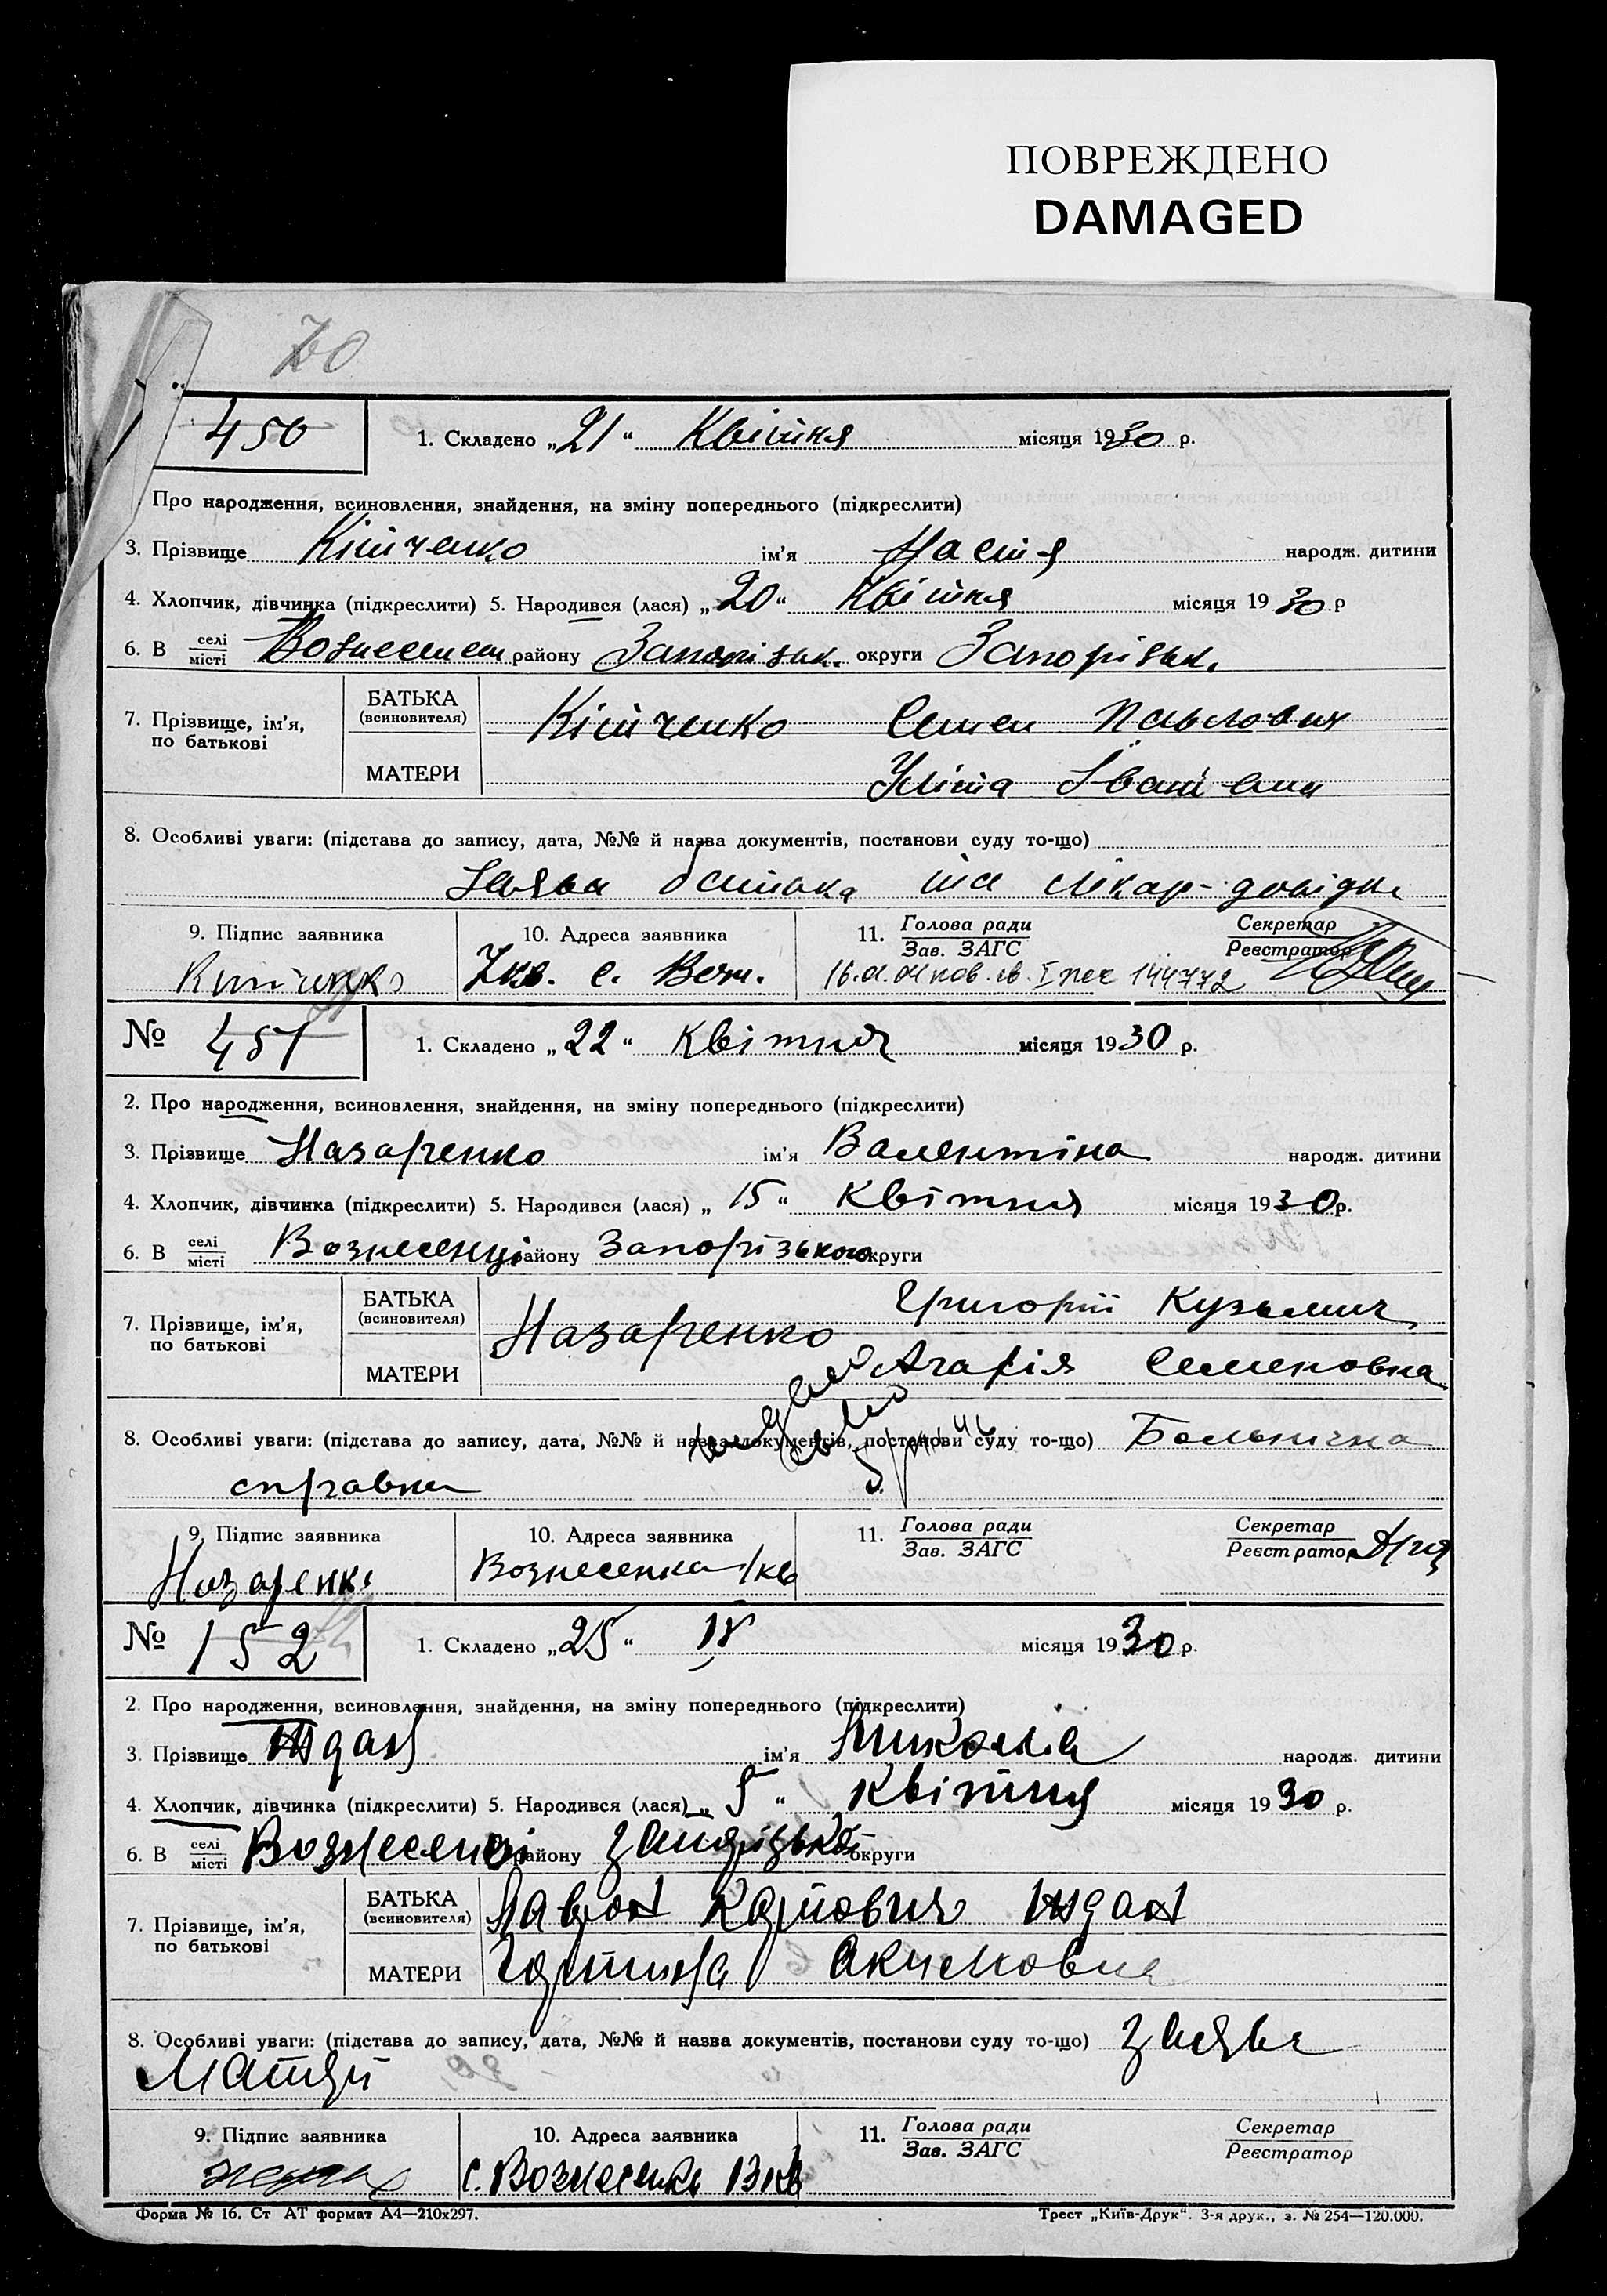 ПОВРЕЖДЕНО
DAMAGED
70
450
1. Складено „21“ Квітня місяця 1930 р.
Про народження, всиновлення, знайдення, на зміну попереднього (підкреслити)
3. Прізвище Кітченко ім'я Настя народж. дитини
4. Хлопчик, дівчинка (підкреслити) 5. Народився (лася) „20“ Квітня місяця 1930 р
6. В селі/місті району Запорізьк. округи Запорізьк.
7. Прізвище, ім'я, по батькові
БАТЬКА (всиновителя) Кітченко Семен Павлович
МАТЕРИ Уліта Іванівна
8. Особливі уваги: (підстава до запису, дата, №№ й назва документів, постанови суду то-що)
Заява батька та лікар-довідка
9. Підпис заявника 10. Адреса заявника 11. Голова ради/Зав. ЗАГС Секретар/Реєстратор
7 кв. с. Возн. пов. св. 144772
№ 451 1. Складено „22“ Квітня місяця 1930 р.
2. Про народження, всиновлення, знайдення, на зміну попереднього (підкреслити)
3. Прізвище Назаренко ім'я Валентіна народж. дитини
4. Хлопчик, дівчинка (підкреслити) 5. Народився (лася) „15“ Квітня місяця 1930 р.
6. В селі/місті Вознесенці району Запорізького округи
7. Прізвище, ім'я, по батькові
БАТЬКА (всиновителя) Назаренко Григорій Кузьмич
МАТЕРИ Агафія Семеновна
8. Особливі уваги: (підстава до запису, дата, №№ й назва документів, постанови суду то-що) Больнична
справка
9. Підпис заявника 10. Адреса заявника 11. Голова ради/Зав. ЗАГС Секретар/Реєстратор
Назаренко Вознесенка 1 кв
№ 152 1. Складено „25“ IV місяця 1930 р.
2. Про народження, всиновлення, знайдення, на зміну попереднього (підкреслити)
3. Прізвище Ждан ім'я Микола народж. дитини
4. Хлопчик, дівчинка (підкреслити) 5. Народився (лася) „5“ Квітня місяця 1930 р.
6. В селі/місті Вознесенці району округи
7. Прізвище, ім'я, по батькові
БАТЬКА (всиновителя) Лаврон Карпович Ждан
МАТЕРИ Горпина Акимовна
8. Особливі уваги: (підстава до запису, дата, №№ й назва документів, постанови суду то-що) Заява
Матери
9. Підпис заявника 10. Адреса заявника 11. Голова ради/Зав. ЗАГС Секретар/Реєстратор
с. Вознесенка 13 кв
Форма № 16. Ст АТ формат А4—210х297. Трест „Київ-Друк“. 3-я друк., з. № 254—120.000.